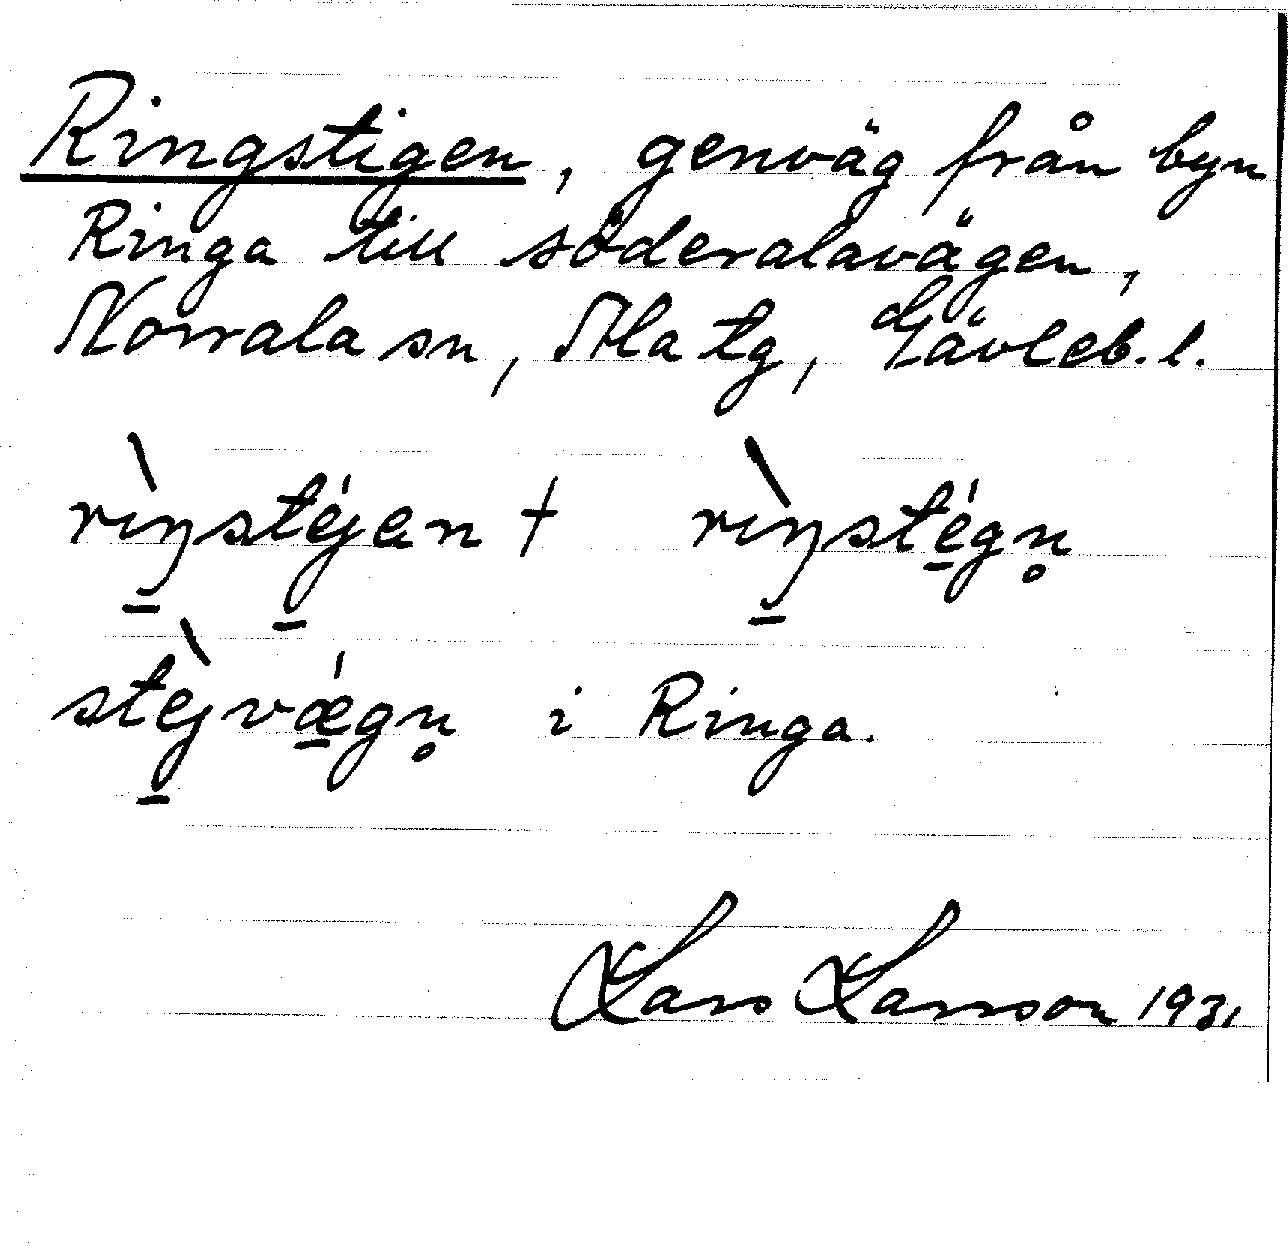 Ringstigen, genväg från byn
Ringa till söderalavägen,
Norrala sn, Ala tg, Gävleb. l.
rìŋ̠stéj̠en † rìŋ̠sté̠gn̥
stèj̠vǽ̠gn̥ i Ringa.
Lars Larsson 1931